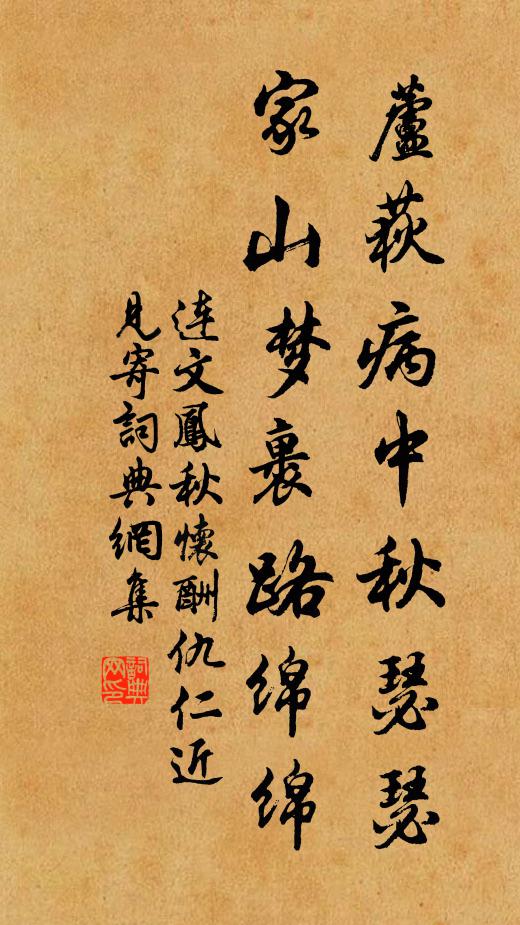 蘆荻病中秋瑟瑟
家山梦裏路绵绵
连文鳳秋懷酬仇仁近
見寄詞典網集
詞典
网印